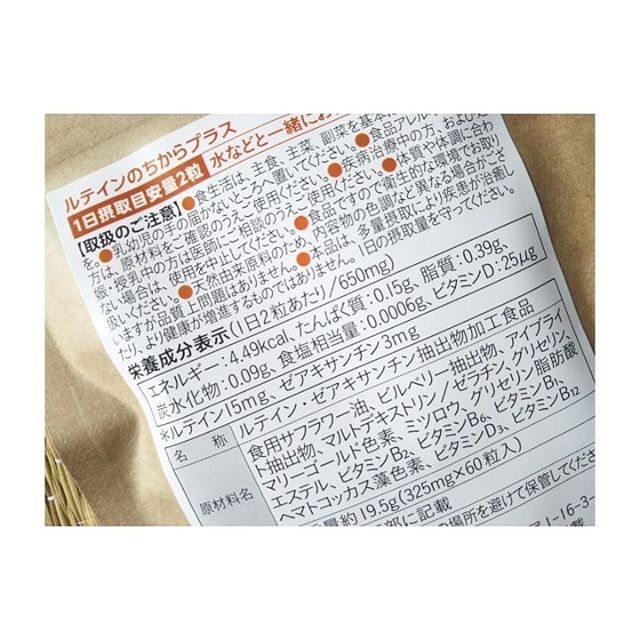 ルテインのちからプラス
1日摂取目安量2粒 水などと一緒にお
【取扱のご注意】●食生活は、主食、主菜、副菜を基本に
を。●乳幼児の手の届かないところへ置いてください。●食品アレル
方は、原材料をご確認のうえご使用ください。●疾病治療中の方、および妊
娠・授乳中の方は医師にご相談のうえご使用ください。●体質や体調に合わ
ない場合は、使用を中止してください。●食品ですので衛生的な環境でお取り
扱いください。●天然由来原料のため、内容物の色調など異なる場合がござ
いますが品質上問題はありません。●本品は、多量摂取により疾病が治癒し
たり、より健康が増進するものではありません。1日の摂取量を守ってください。
栄養成分表示(1日2粒あたり/650mg)
エネルギー:4.49kcal、たんぱく質:0.15g、脂質:0.39g、
炭水化物:0.09g、食塩相当量:0.0006g、ビタミンD:25μg
*ルテイン15mg、ゼアキサンチン3mg
名 称 ルテイン・ゼアキサンチン抽出物加工食品
原材料名 食用サフラワー油、ビルベリー抽出物、アイブライ
ト抽出物、マルトデキストリン/ゼラチン、グリセリン、
マリーゴールド色素、ミツロウ、グリセリン脂肪酸
エステル、ビタミンB2、ビタミンB6、ビタミンB1、
ヘマトコッカス藻色素、ビタミンD3、ビタミンB12
量約19.5g(325mg×60粒入)
部に記載
の場所を避けて保管してくださ
1-16-3-